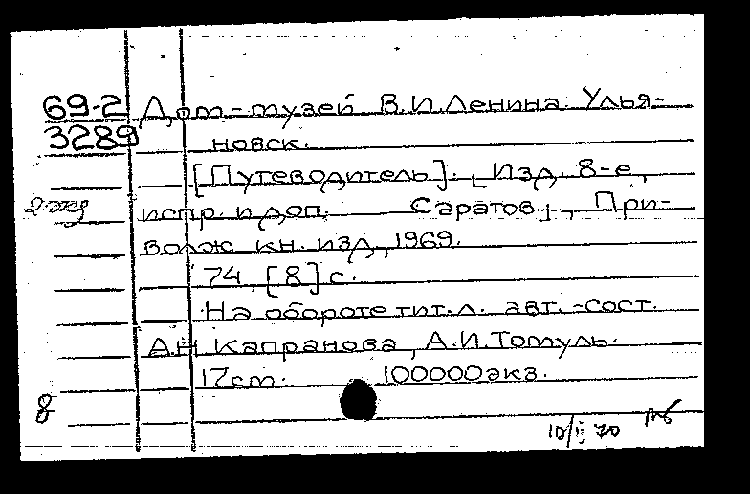 69-2 Дом-музей В.И.Ленина. Улья-
3289 новск.
[Путеводитель]. Изд. 8-е,
2 экз испр. и доп. Саратов, При-
волж. кн. изд, 1969.
74, [8] с.
На обороте тит.л. авт.-сост.
А.Н Капранова, А.И.Томуль.
17cm. 100000 экз.
8
10/II 70